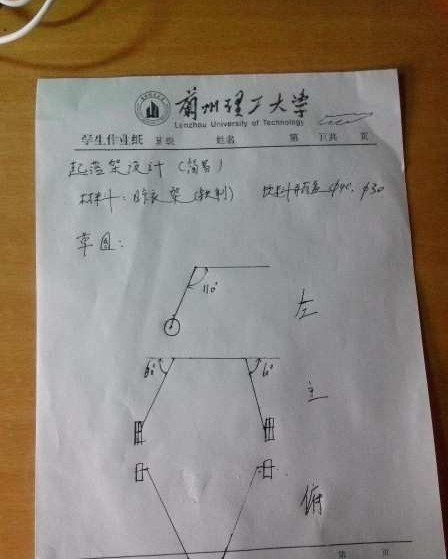 兰州理工大学
Lanzhou University of Technology
学生作业纸 班级 姓名 第 页共 页
起落架设计（简易）
材料：晾衣架（铁制） 饮料瓶盖 φ40、φ30
草图：
110°
左
60° 60°
主
俯
第 页